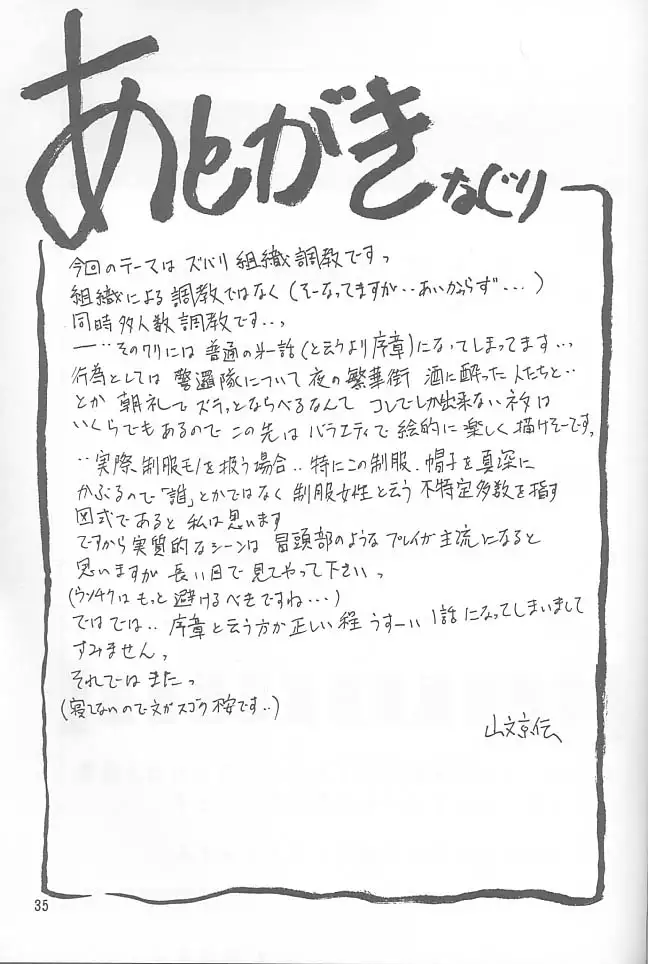 あとがき なぐり
今回のテーマは ズバリ 組織調教ですっ
組織による 調教ではなく(そーなってますが‥あいかわらず‥‥)
同時多人数調教です‥っ
ー‥そのワリには 普通の第一話(と云うより序章)になってしまってます‥っ
行為としては 警邏隊について 夜の繁華街 酒に酔った人たちと‥
とか 朝礼で ズラッとならべるなんて コレでしか出来ないネタは
いくらでもあるので この先は バラエティで絵的に楽しく描けそーですっ
‥実際、制服モノを扱う場合‥特にこの制服、帽子を真深に
かぶるので「誰」とかではなく 制服女性と云う 不特定多数を指す
図式であると 私は思います
ですから実質的なシーンは 冒頭部のような プレイが主流になると
思いますが 長い目で 見てやって下さいっ
(ウンチクは もっと 避けるべきですね‥‥)
ではでは‥ 序章と云う方が正しい程 うすーい 1話になってしまいまして
すみませんっ
それではまたっ
(寝てないので文がスゴク不安です‥)
山文京伝
35